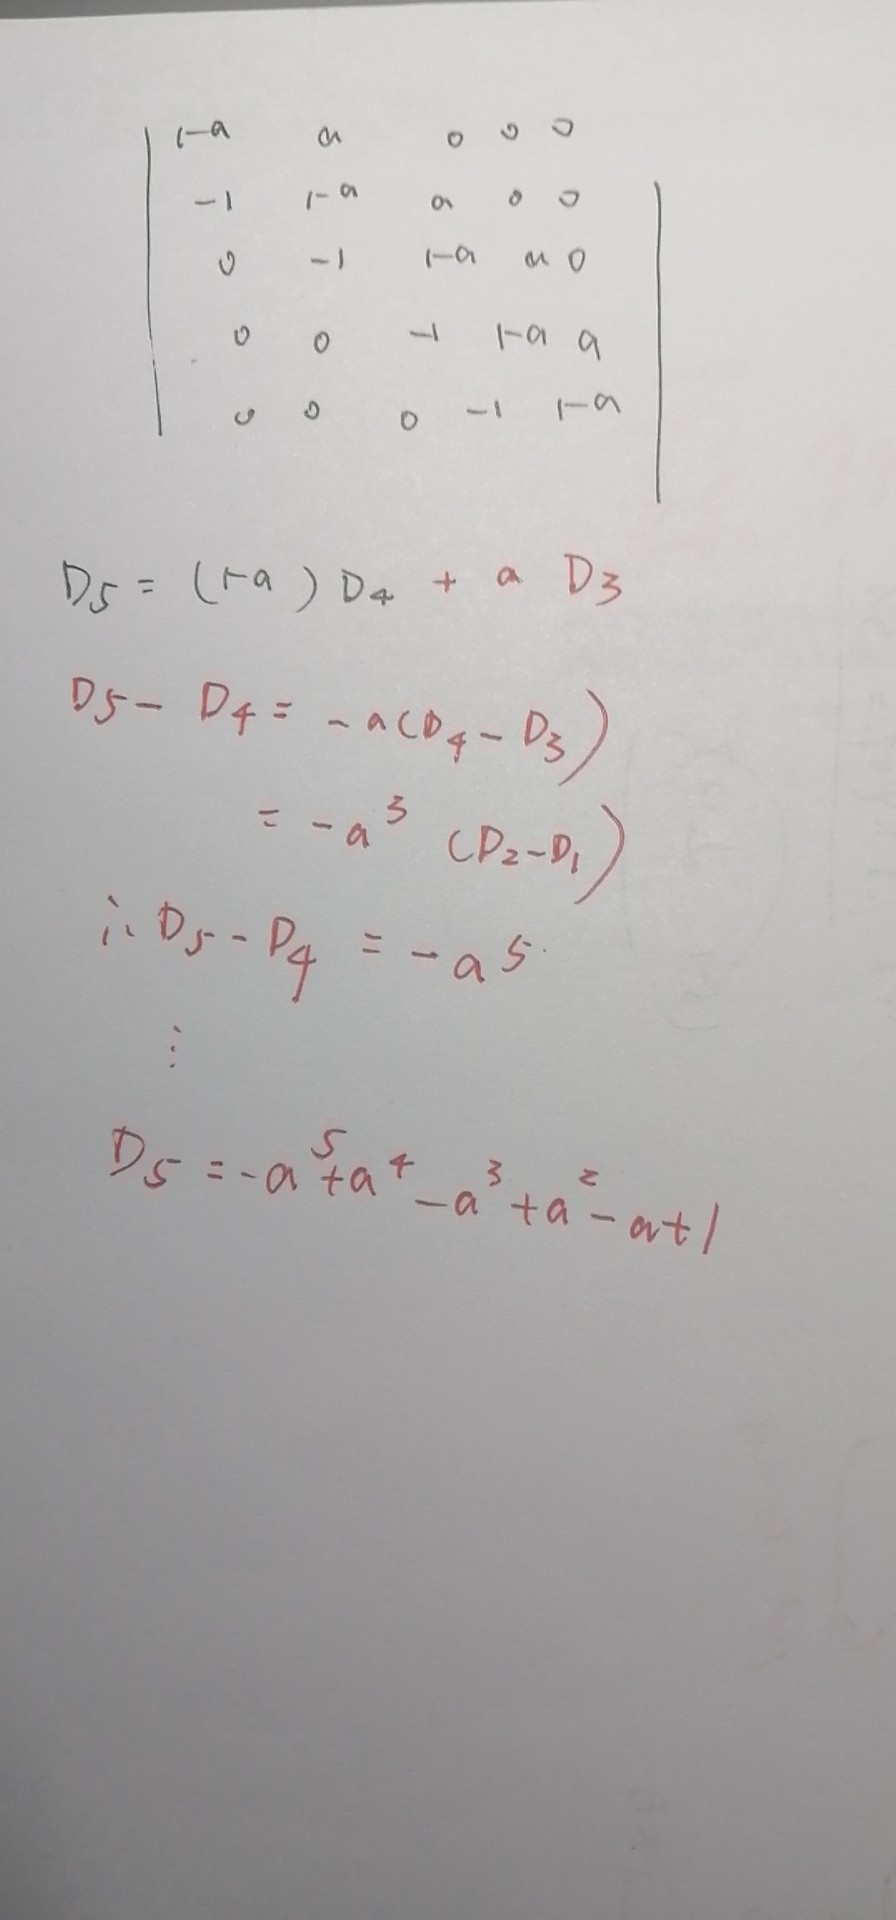 1-a a 0 0 0
-1 1-a a 0 0
0 -1 1-a a 0
0 0 -1 1-a a
0 0 0 -1 1-a
D5 = (1-a) D4 + a D3
D5 - D4 = -a(D4 - D3)
= -a³ (D2-D1)
∴ D5 - D4 = -a⁵
⋮
D5 = -a⁵+a⁴-a³+a²-a+1